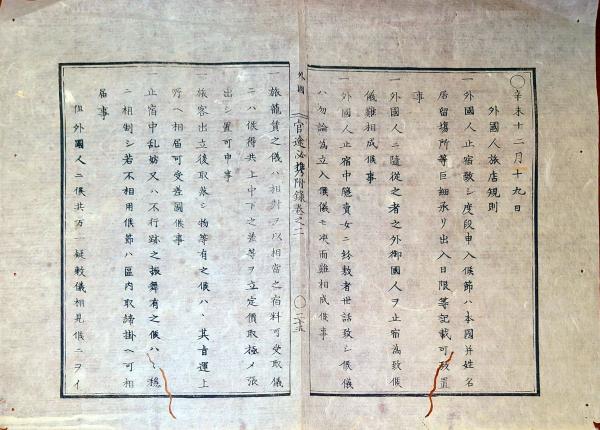 〇辛未十二月十九日
外國人旅店規則
一外國人止宿致シ度段申入候節ハ本國并姓名
居留場所等巨細承リ出入日限等記載可致置
事
一外國人ニ隨從之者之外御國人ヲ止宿為致候
儀難相成候事
一外國人止宿中隱賣女ニ紛敷者世話致シ候儀
ハ勿論為立入候儀モ決而難相成候事
外國
官途必携附録巻之二
〇二十五
一旅籠賃之儀ハ相對ヲ以相當之宿料可受取儀
ニハ候得共上中下之差等ヲ立定價取極メ張
出シ置可申事
一旅客出立後取落シ物等有之候ハヽ其旨運上
所ヘ相届可受差圖候事
止宿中乱妨又ハ不行跡之振舞有之候ハヽ穏
ニ相制シ若不相用候節ハ區内取締掛ヘ可相
届事
但外國人ニ候共万一疑敷儀相見候ニヲイ